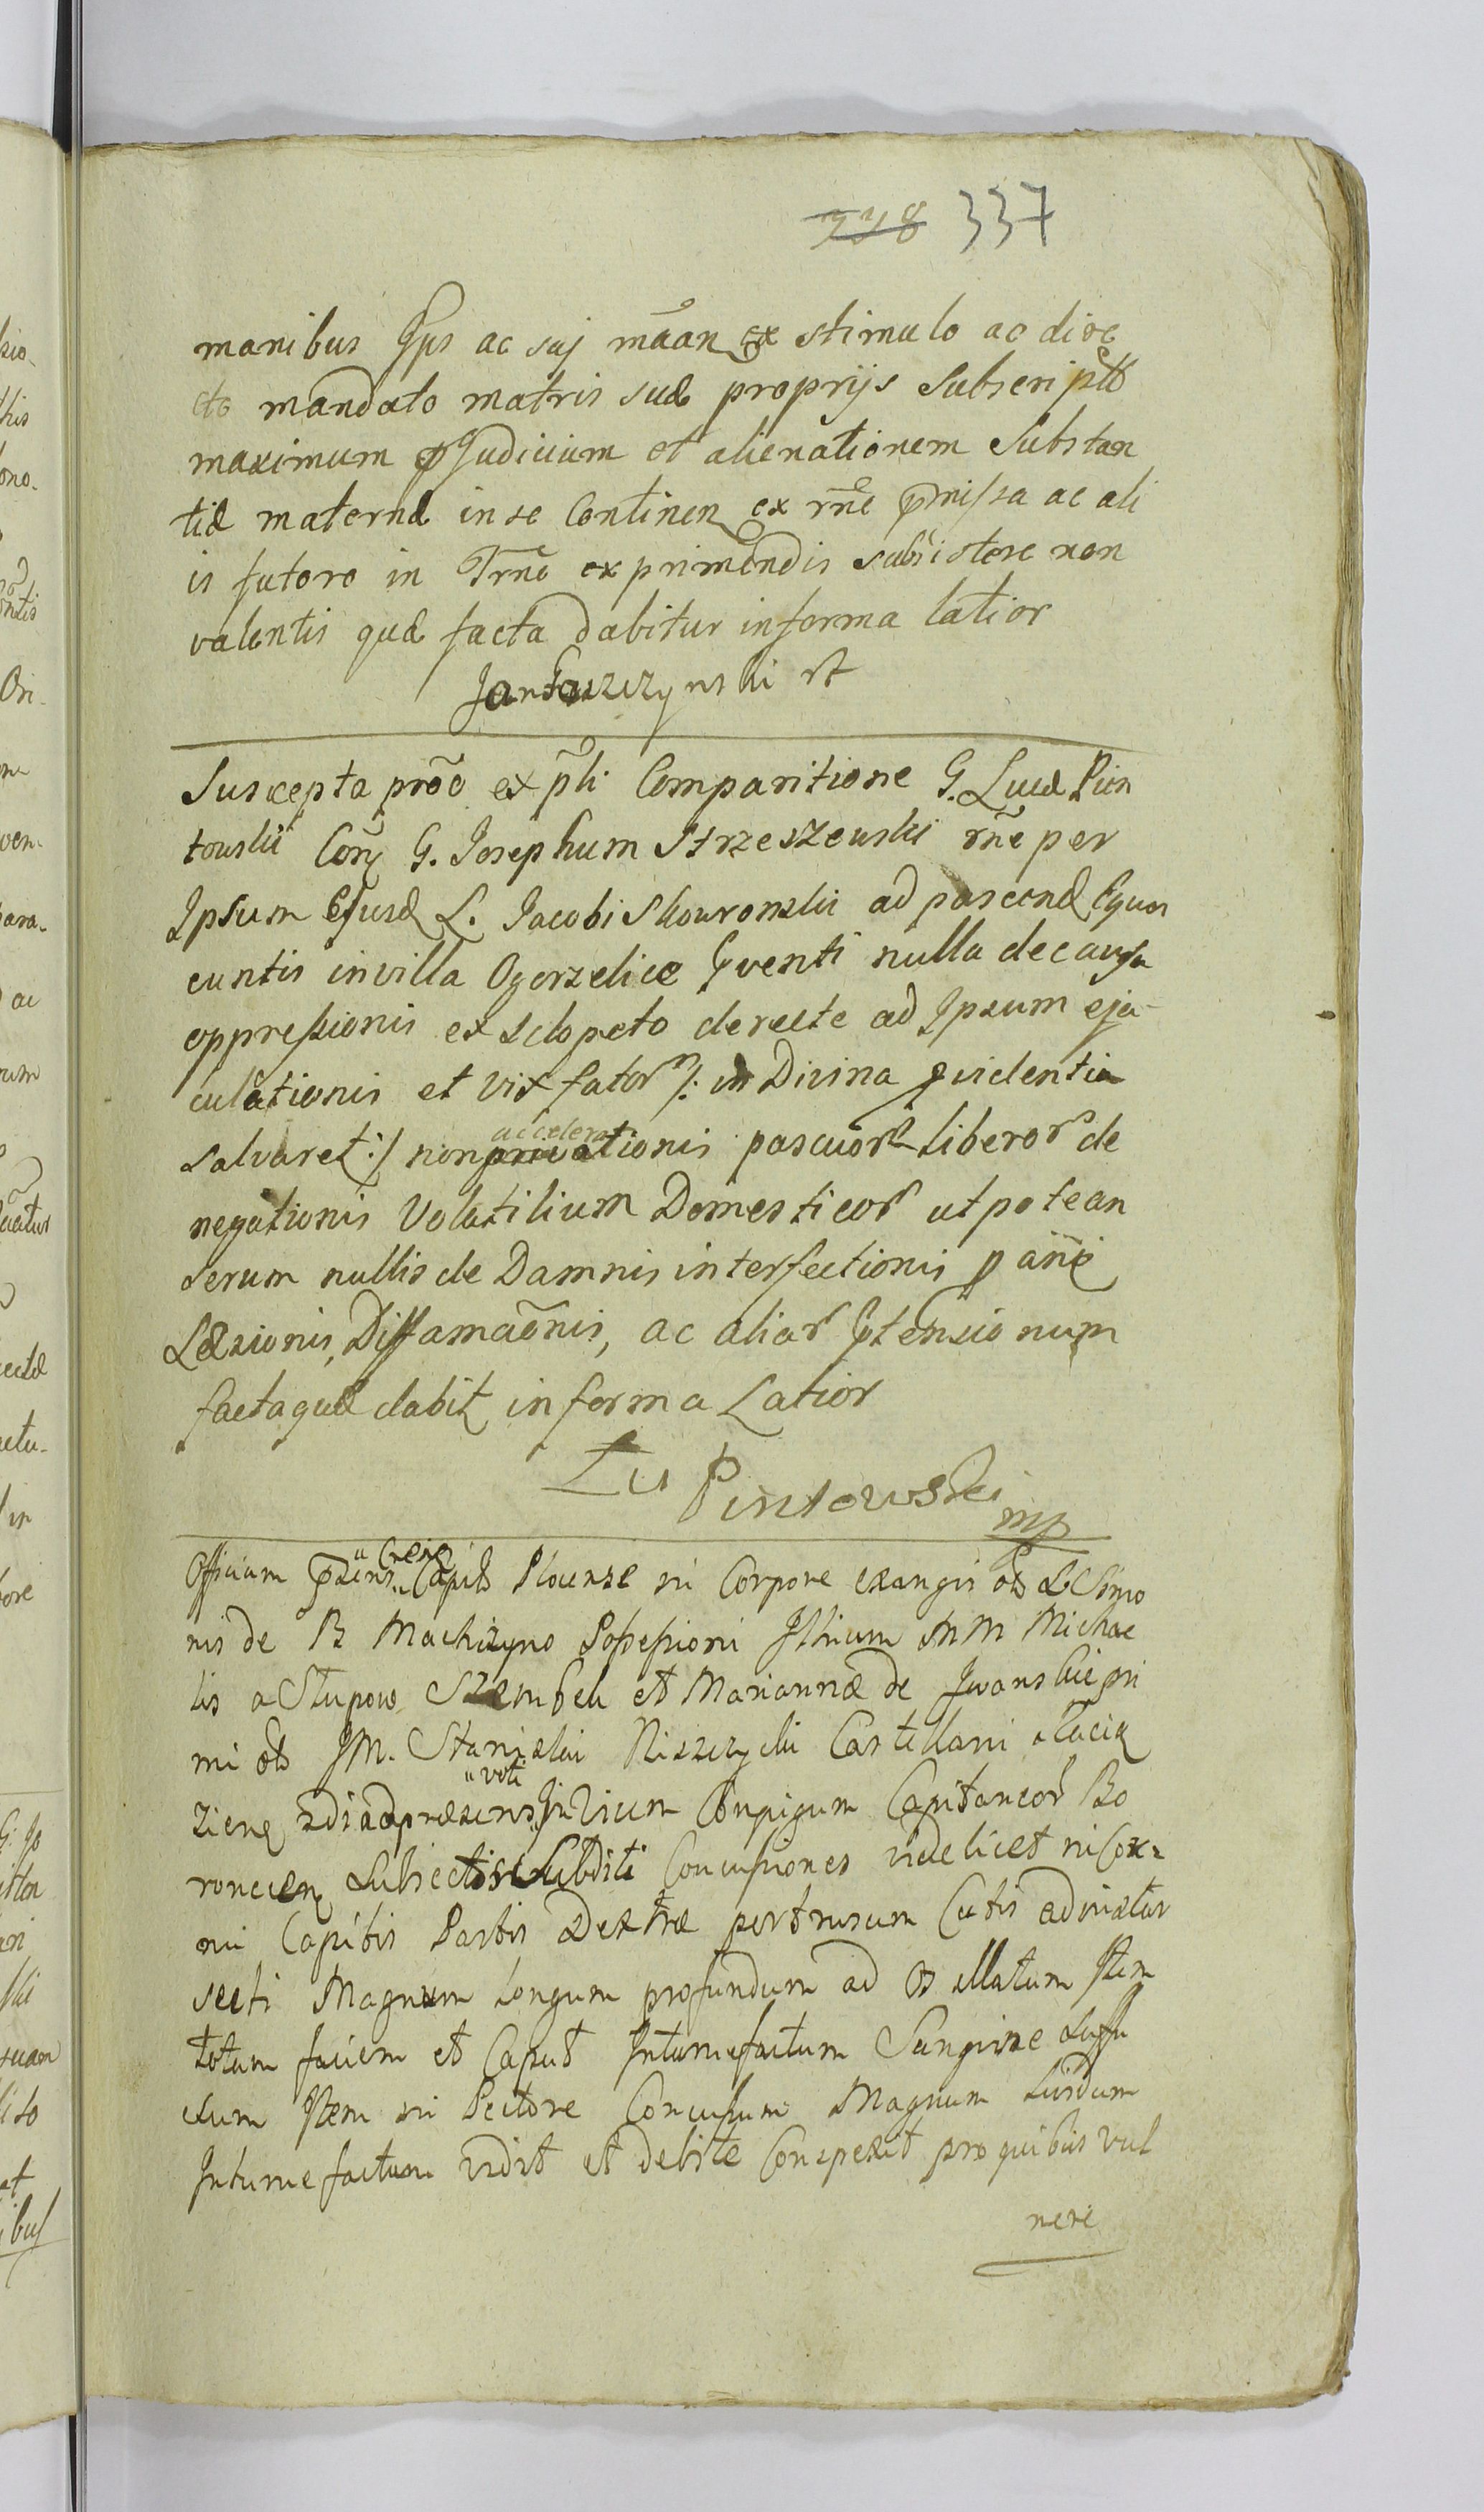 337
manibus Ipius ac suj mãan ex stimulo ac dire
cto mandato matris suæ proprijs Subscriptũ
maximum pjudicium et alienationem Substan
tiæ maternæ in se Continen ex rñe pmissa ac ali
is futoro in Trño exprimendis subsistere non
valentis quæ facta dabitur in forma latior
Jan Suszczynski
Suscepta prõe ex pñli Comparitione G. Lucæ Pien
towski Con G. Josephum Strzeszewski rñe per
Ipsum Ejusd L. Jacobi Skowronski ad pascend Equos
euntis in villa Ogorzelice pventi nulla de causa
oppressionis ex sclopeto derecte ad Ipsum eja-
culationis et vix fator /: in Divina pvidentia
salvaret :/ non accelerationis pascuor liberor de
negationis Volatilium Domesticor utpote an
serum nullis de Damnis interfectionis p
Læsionis, Diffamaõnis, ac aliar ptensionum
facta quæ dabit in forma Latior
Lu Pintowski mp
Officium pzens Crense Capit Plocense in Corpore exangvi olt L Simo
nis de B Machczyno Possessioni Ilhium MM Michae
lis a Slupow Szembek et Mariannæ de Iwanskie pri
mi olt IM. Stanislai Niszczycki Castellani
ziene 2di ad præsens voti In Vium Conjigum Capitaneor Bo
roncien Subiectis Subditi Concussiones videlicet in Cox-
ni Capitis Partis Dextræ pertrusum Cutis ad instar
secti Magnum longum profundum ad os illatum Item
totum faciem et Caput Intumefactum Sangvine Suffu
sum Item in Pectore Concussum Magnum Lividum
Intumefactum vidit et debite Conspexit pro quibus vul
nere